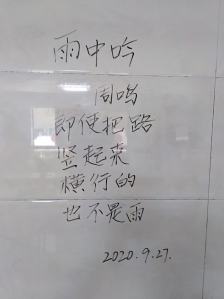 雨中吟
周鸣
即使把路
竖起来
横行的
也不是雨
2020.9.27.